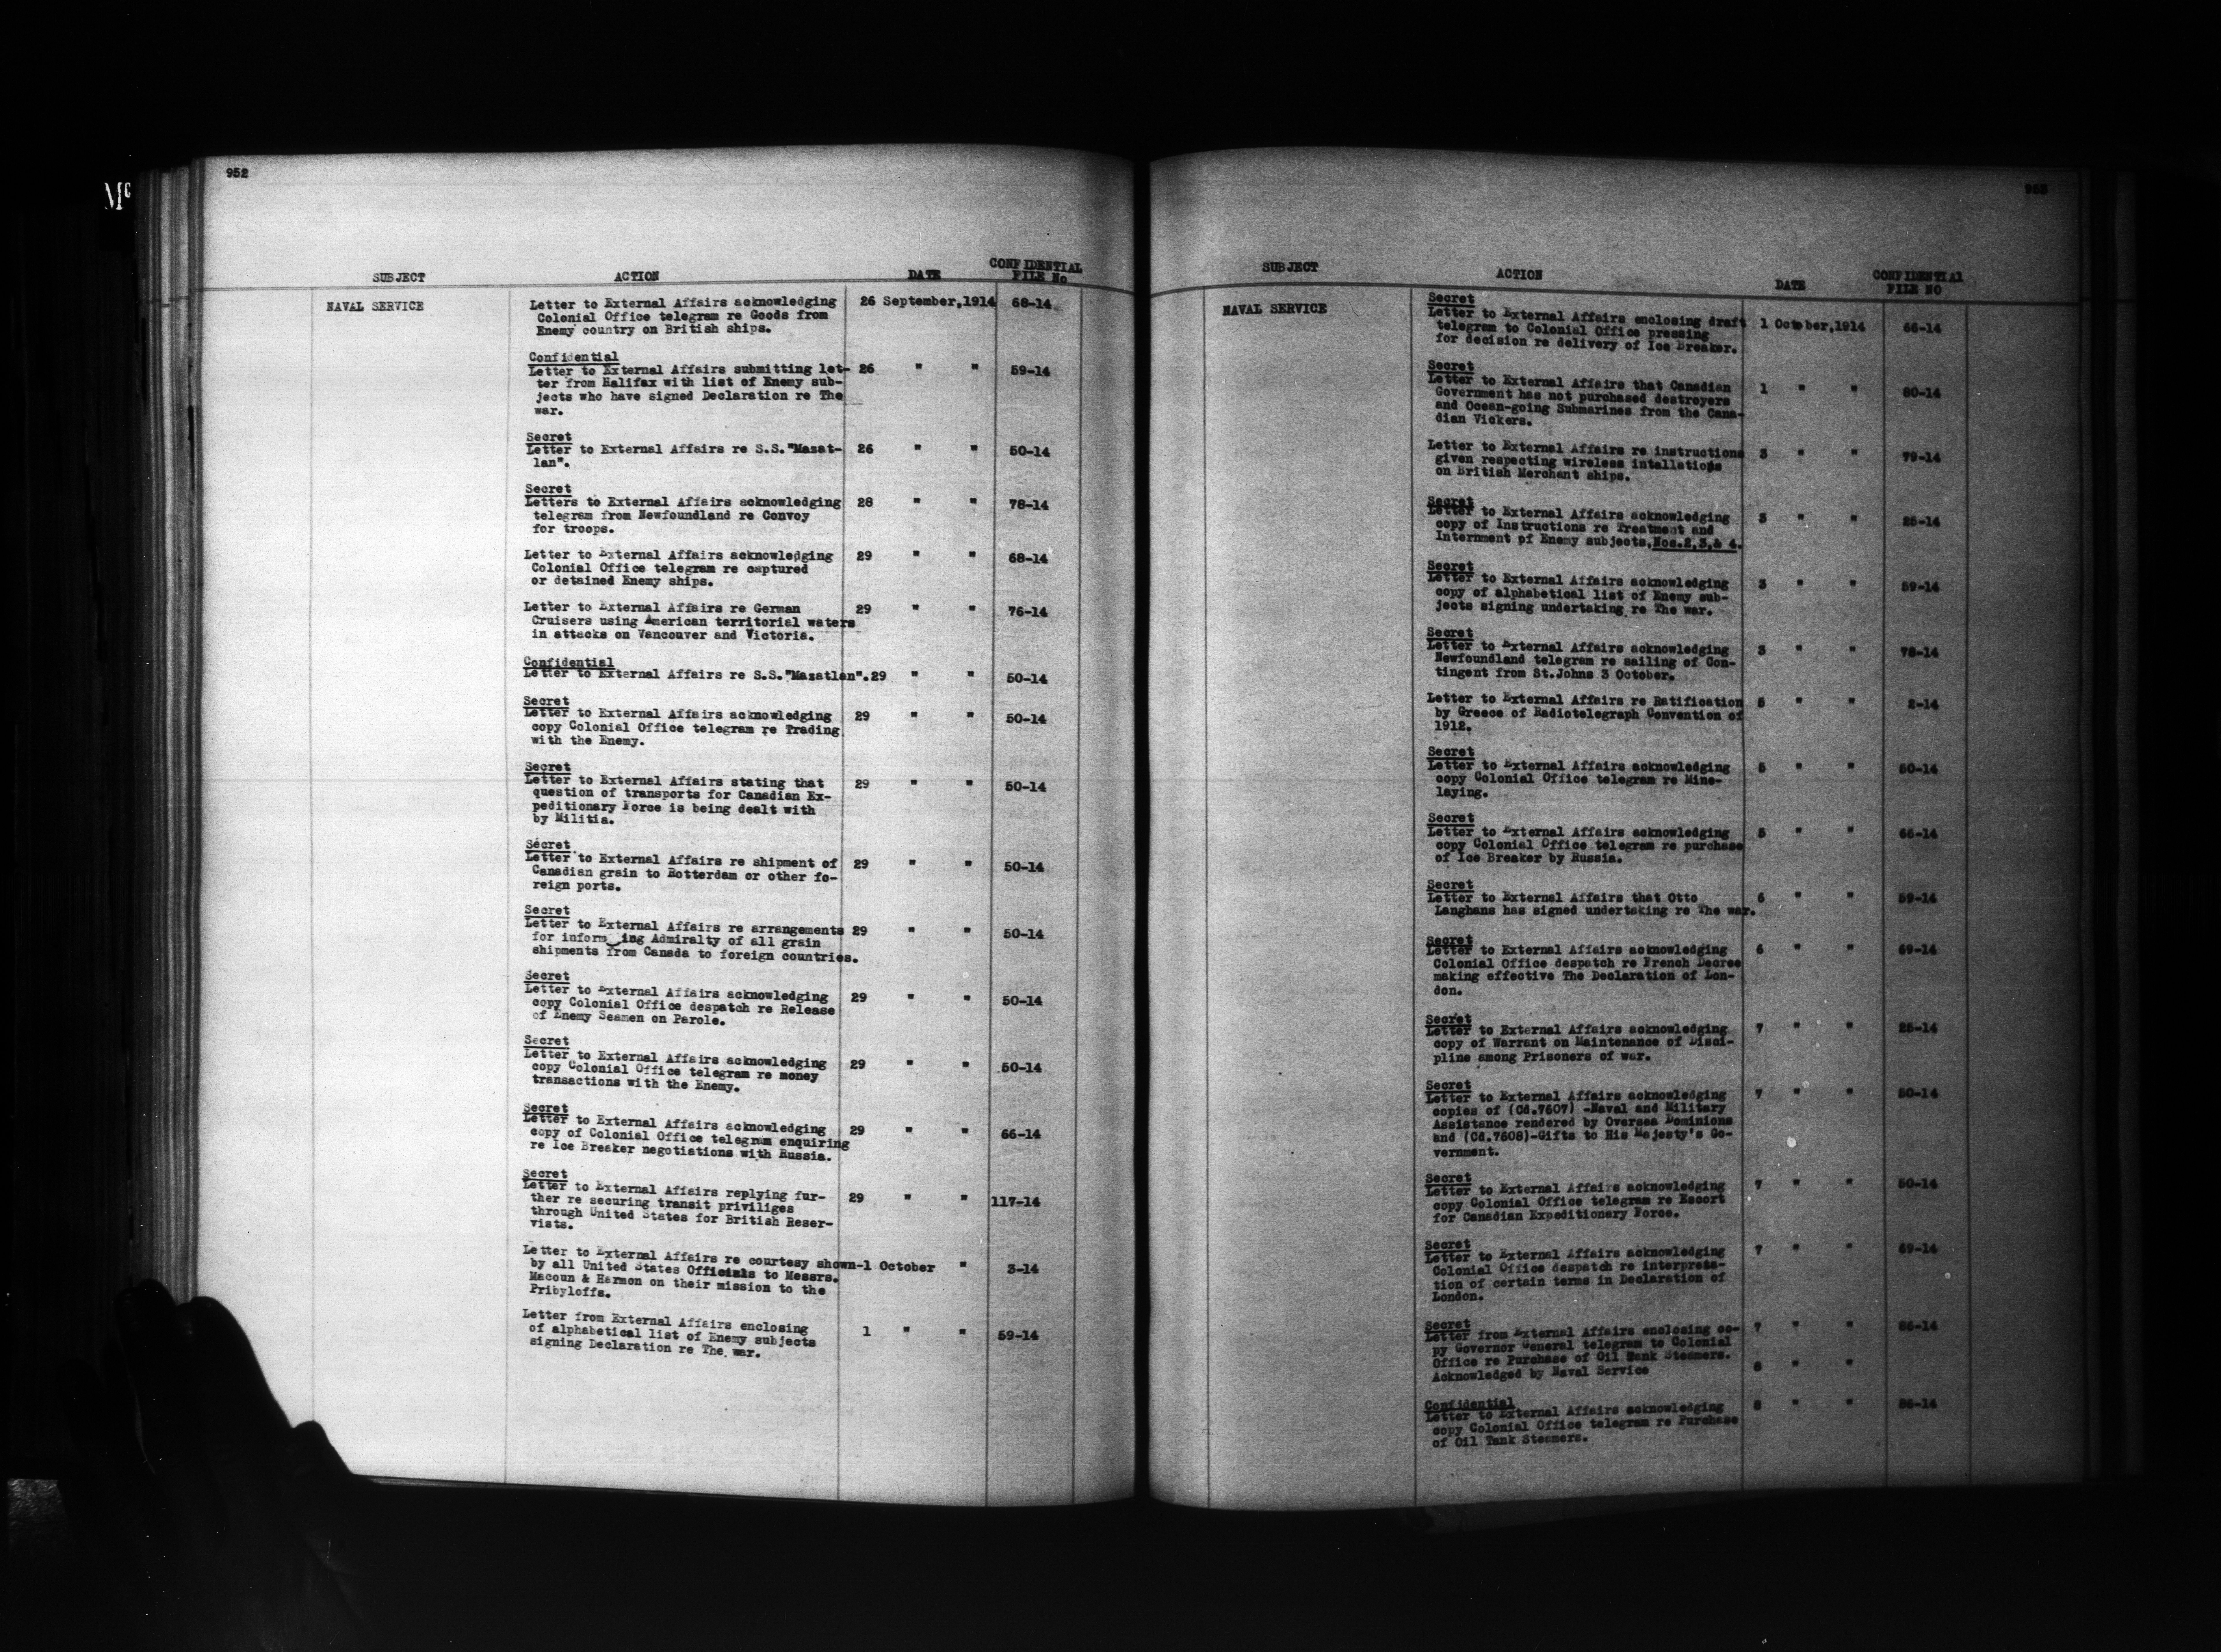 952
Mc
SUBJECT ACTION DATE CONFIDENTIAL
FILE No
NAVAL SERVICE
Letter to External Affairs acknowledging 26 September,1914 68-14
Colonial Office telegram re Goods from
Enemy country on British ships.
Confidential
Letter to External Affairs submitting let- 26 " " 59-14
ter from Halifax with list of Enemy sub-
jects who have signed Declaration re The
war.
Secret
Letter to External Affairs re S.S."Mazat- 26 " " 50-14
lan".
Secret
Letters to External Affairs acknowledging 28 " " 78-14
telegram from Newfoundland re Convoy
for troops.
Letter to External Affairs acknowledging 29 " " 68-14
Colonial Office telegram re captured
or detained Enemy ships.
Letter to External Affairs re German 29 " " 76-14
Cruisers using American territorial waters
in attacks on Vancouver and Victoria.
Confidential
Letter to External Affairs re S.S."Mazatlan".29 " " 50-14
Secret
Letter to External Affairs acknowledging 29 " " 50-14
copy Colonial Office telegram re Trading
with the Enemy.
Secret
Letter to External Affairs stating that 29 " " 50-14
question of transports for Canadian Ex-
peditionary Force is being dealt with
by Militia.
Secret
Letter to External Affairs re shipment of 29 " " 50-14
Canadian grain to Rotterdam or other fo-
reign ports.
Secret
Letter to External Affairs re arrangements 29 " " 50-14
for inform ing Admiralty of all grain
shipments from Canada to foreign countries.
Secret
Letter to External Affairs acknowledging 29 " " 50-14
copy Colonial Office despatch re Release
of Enemy Seamen on Parole.
Secret
Letter to External Affairs acknowledging 29 " " 50-14
copy Colonial Office telegram re money
transactions with the Enemy.
Secret
Letter to External Affairs acknowledging 29 " " 66-14
copy of Colonial Office telegram enquiring
re Ice Breaker negotiations with Russia.
Secret
Letter to External Affairs replying fur- 29 " " 117-14
ther re securing transit priviliges
through United States for British Reser-
vists.
Letter to External Affairs re courtesy shown-1 October " 3-14
by all United States Officials to Messrs.
Macoun & Harmon on their mission to the
Pribyloffs.
Letter from External Affairs enclosing 1 " " 59-14
of alphabetical list of Enemy subjects
signing Declaration re The war.
953
SUBJECT ACTION DATE CONFIDENTIAl
FILE NO
NAVAL SERVICE
Secret
Letter to External Affairs enclosing draft 1 October,1914 66-14
telegram to Colonial Office pressing
for decision re delivery of Ice Breaker.
Secret
Letter to External Affairs that Canadian 1 " " 80-14
Government has not purchased destroyers
and Ocean-going Submarines from the Cana-
dian Vickers.
Letter to External Affairs re instructions 3 " " 79-14
given respecting wireless intallations
on British Merchant ships.
Secret
Letter to External Affairs acknowledging 3 " " 25-14
copy of Instructions re Treatment and
Internment pf Enemy subjects,Nos.2,3,& 4.
Secret
Letter to External Affairs acknowledging 3 " " 59-14
copy of alphabetical list of Enemy sub-
jects signing undertaking re The war.
Secret
Letter to External Affairs acknowledging 3 " " 78-14
Newfoundland telegram re sailing of Con-
tingent from St.Johns 3 October.
Letter to External Affairs re Ratification 5 " " 2-14
by Greece of Radiotelegraph Convention of
1912.
Secret
Letter to External Affairs acknowledging 5 " " 50-14
copy Colonial Office telegram re Mine-
laying.
Secret
Letter to External Affairs acknowledging 5 " " 66-14
copy Colonial Office telegram re purchase
of Ice Breaker by Russia.
Secret
Letter to External Affairs that Otto 6 " " 59-14
Langhans has signed undertaking re The war.
Secret
Letter to External Affairs acknowledging 6 " " 69-14
Colonial Office despatch re French Decree
making effective The Declaration of Lon-
don.
Secret
Letter to External Affairs acknowledging 7 " " 25-14
copy of Warrant on Maintenance of Disci-
pline among Prisoners of war.
Secret
Letter to External Affairs acknowledging 7 " " 50-14
copies of (Cd.7607) -Naval and Military
Assistance rendered by Oversea Dominions
and (Cd.7608)-Gifts to His Majesty's Go-
vernment.
Secret
Letter to External Affairs acknowledging 7 " " 50-14
copy Colonial Office telegram re Escort
for Canadian Expeditionary Force.
Secret
Letter to External Affairs acknowledging 7 " " 69-14
Colonial Office despatch re interpreta-
tion of certain terms in Declaration of
London.
Secret
Letter from External Affairs enclosing co- 7 " " 86-14
py Governor General telegram to Colonial
Office re Purchase of Oil Tank Steamers.
Acknowledged by Naval Service 8 " "
Confidential
Letter to External Affairs acknowledging 8 " " 86-14
copy Colonial Office telegram re Purchase
of Oil Tank Steamers.